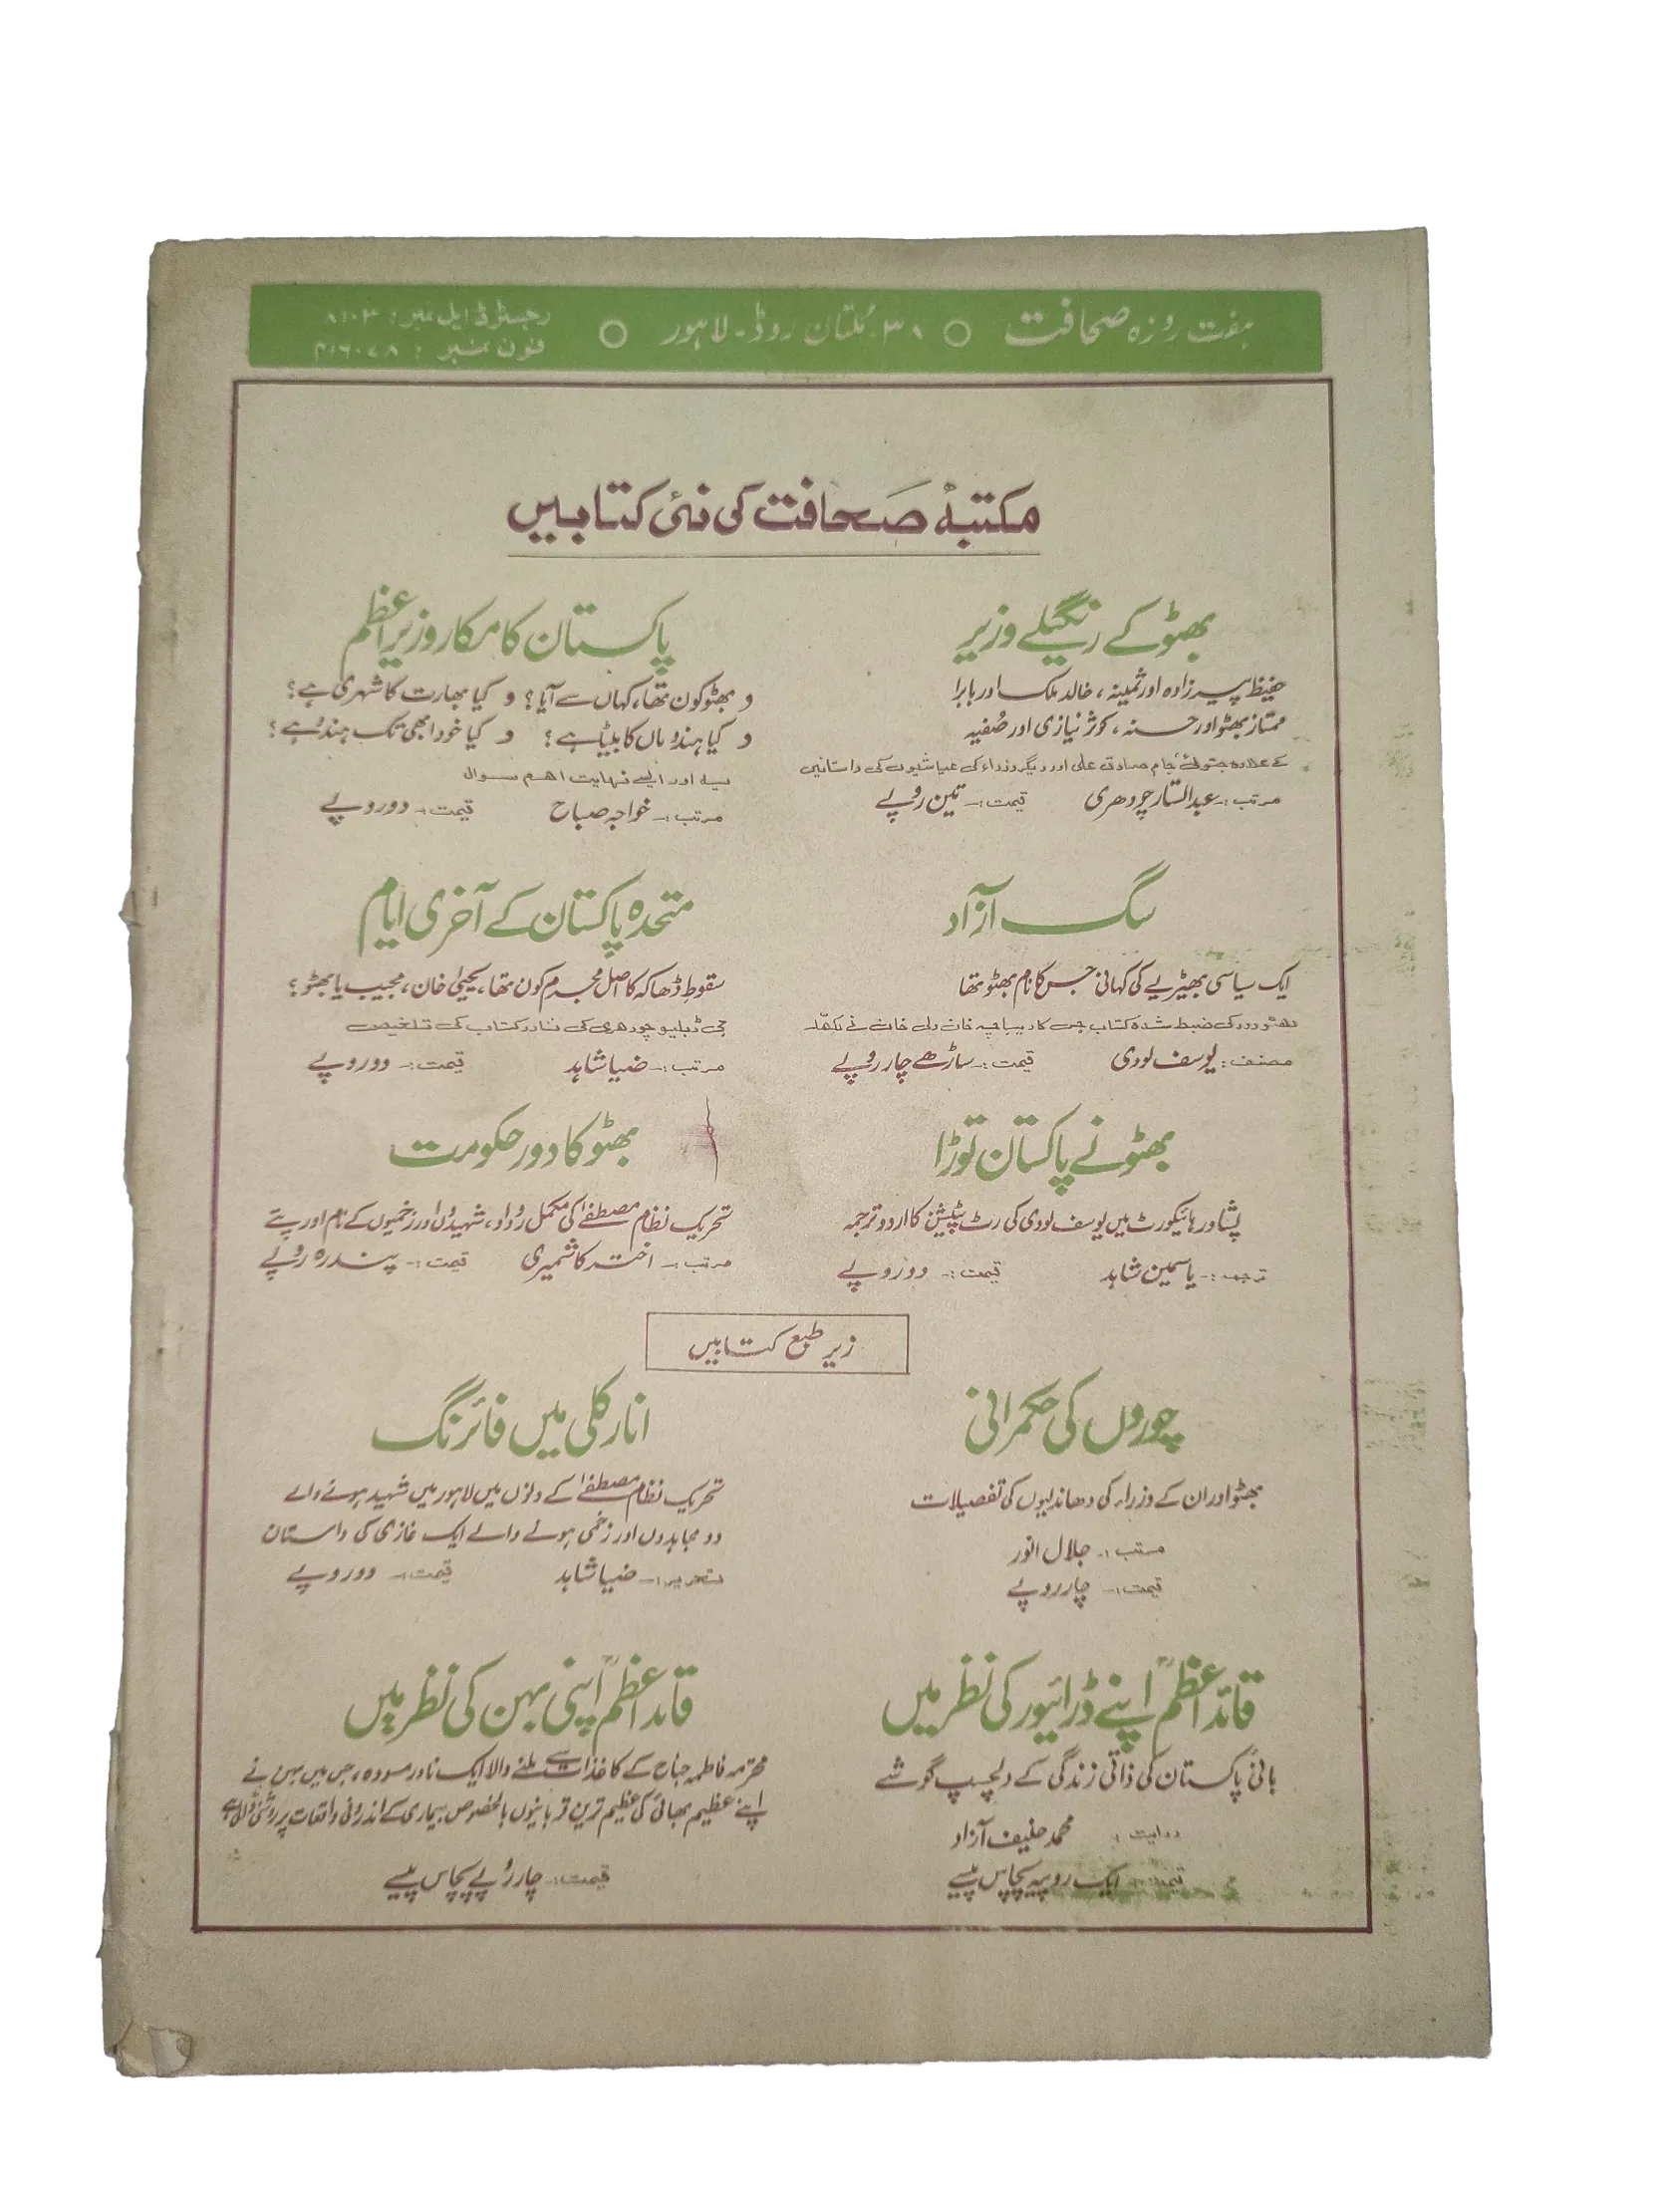 ہفت روزہ صحافت ○ ۳۸۔ ملتان روڈ۔ لاہور ○
رجسٹرڈ ایل نمبر: ۸۱۰۳
فون نمبر:
مکتبہٴ صحافت کی نئی کتابیں
بھٹو کے رنگیلے وزیر
حفیظ پیرزادہ اور ثمینہ، خالد ملک اور بابرا
ممتاز بھٹو اور حسنہ، کوثر نیازی اور صُفیہ
کے علاوہ جتوئی، جام صادق علی اور دیگر وزراء کی عیاشیوں کی داستانیں
مرتب :۔ عبدالستار چودھری قیمت :۔ تین روپے
پاکستان کا مکار وزیراعظم
و بھٹو کون تھا، کہاں سے آیا؟ و کیا بھارت کا شہری ہے؟
و کیا ہندو ماں کا بیٹا ہے؟ و کیا خود ابھی تک ہندو ہے؟
یہ اور ایسے نہایت اہم سوال
مرتب :۔ خواجہ صباح قیمت :۔ دو روپے
سگ آزاد
ایک سیاسی بھیڑیے کی کہانی جس کا نام بھٹو تھا
بھٹو دور کی ضبط شدہ کتاب جس کا دیباچہ خان ولی خان نے لکھا
مصنف : یوسف لودی قیمت :۔ ساڑھے چار روپے
متحدہ پاکستان کے آخری ایام
سقوطِ ڈھاکہ کا اصل مجرم کون تھا، یحییٰ خان، مجیب یا بھٹو؟
جی ڈبلیو چودھری کی نادر کتاب کی تلخیص
مرتب :۔ ضیا شاہد قیمت :۔ دو روپے
بھٹو نے پاکستان توڑا
پشاور ہائیکورٹ میں یوسف لودی کی رٹ پٹیشن کا اردو ترجمہ
ترجمہ :۔ یاسمین شاہد قیمت :۔ دو روپے
بھٹو کا دورِ حکومت
تحریک نظامِ مصطفےٰ کی مکمل رُوداد، شہیدوں اور زخمیوں کے نام اور پتے
مرتب :۔ اختر کاشمیری قیمت :۔ پندرہ روپے
زیرِ طبع کتابیں
چوروں کی حکمرانی
بھٹو اور ان کے وزراء کی دھاندلیوں کی تفصیلات
مرتب :۔ جلال انور
قیمت :۔ چار روپے
انارکلی میں فائرنگ
تحریک نظامِ مصطفےٰ کے دنوں میں لاہور میں شہید ہونے والے
دو مجاہدوں اور زخمی ہونے والے ایک غازی کی داستان
تحریر :۔ ضیا شاہد قیمت :۔ دو روپے
قائداعظمؒ اپنے ڈرائیور کی نظر میں
بانیٔ پاکستان کی ذاتی زندگی کے دلچسپ گوشے
روایت : محمد حنیف آزاد
قیمت :۔ ایک روپیہ پچاس پیسے
قائداعظمؒ اپنی بہن کی نظر میں
محترمہ فاطمہ جناح کے کاغذات سے ملنے والا ایک نادر مسودہ، جس میں بہن نے
اپنے عظیم بھائی کی عظیم ترین قربانیوں بالخصوص بیماری کے اندرونی واقعات پر روشنی ڈالی ہے
قیمت :۔ چار روپے پچاس پیسے